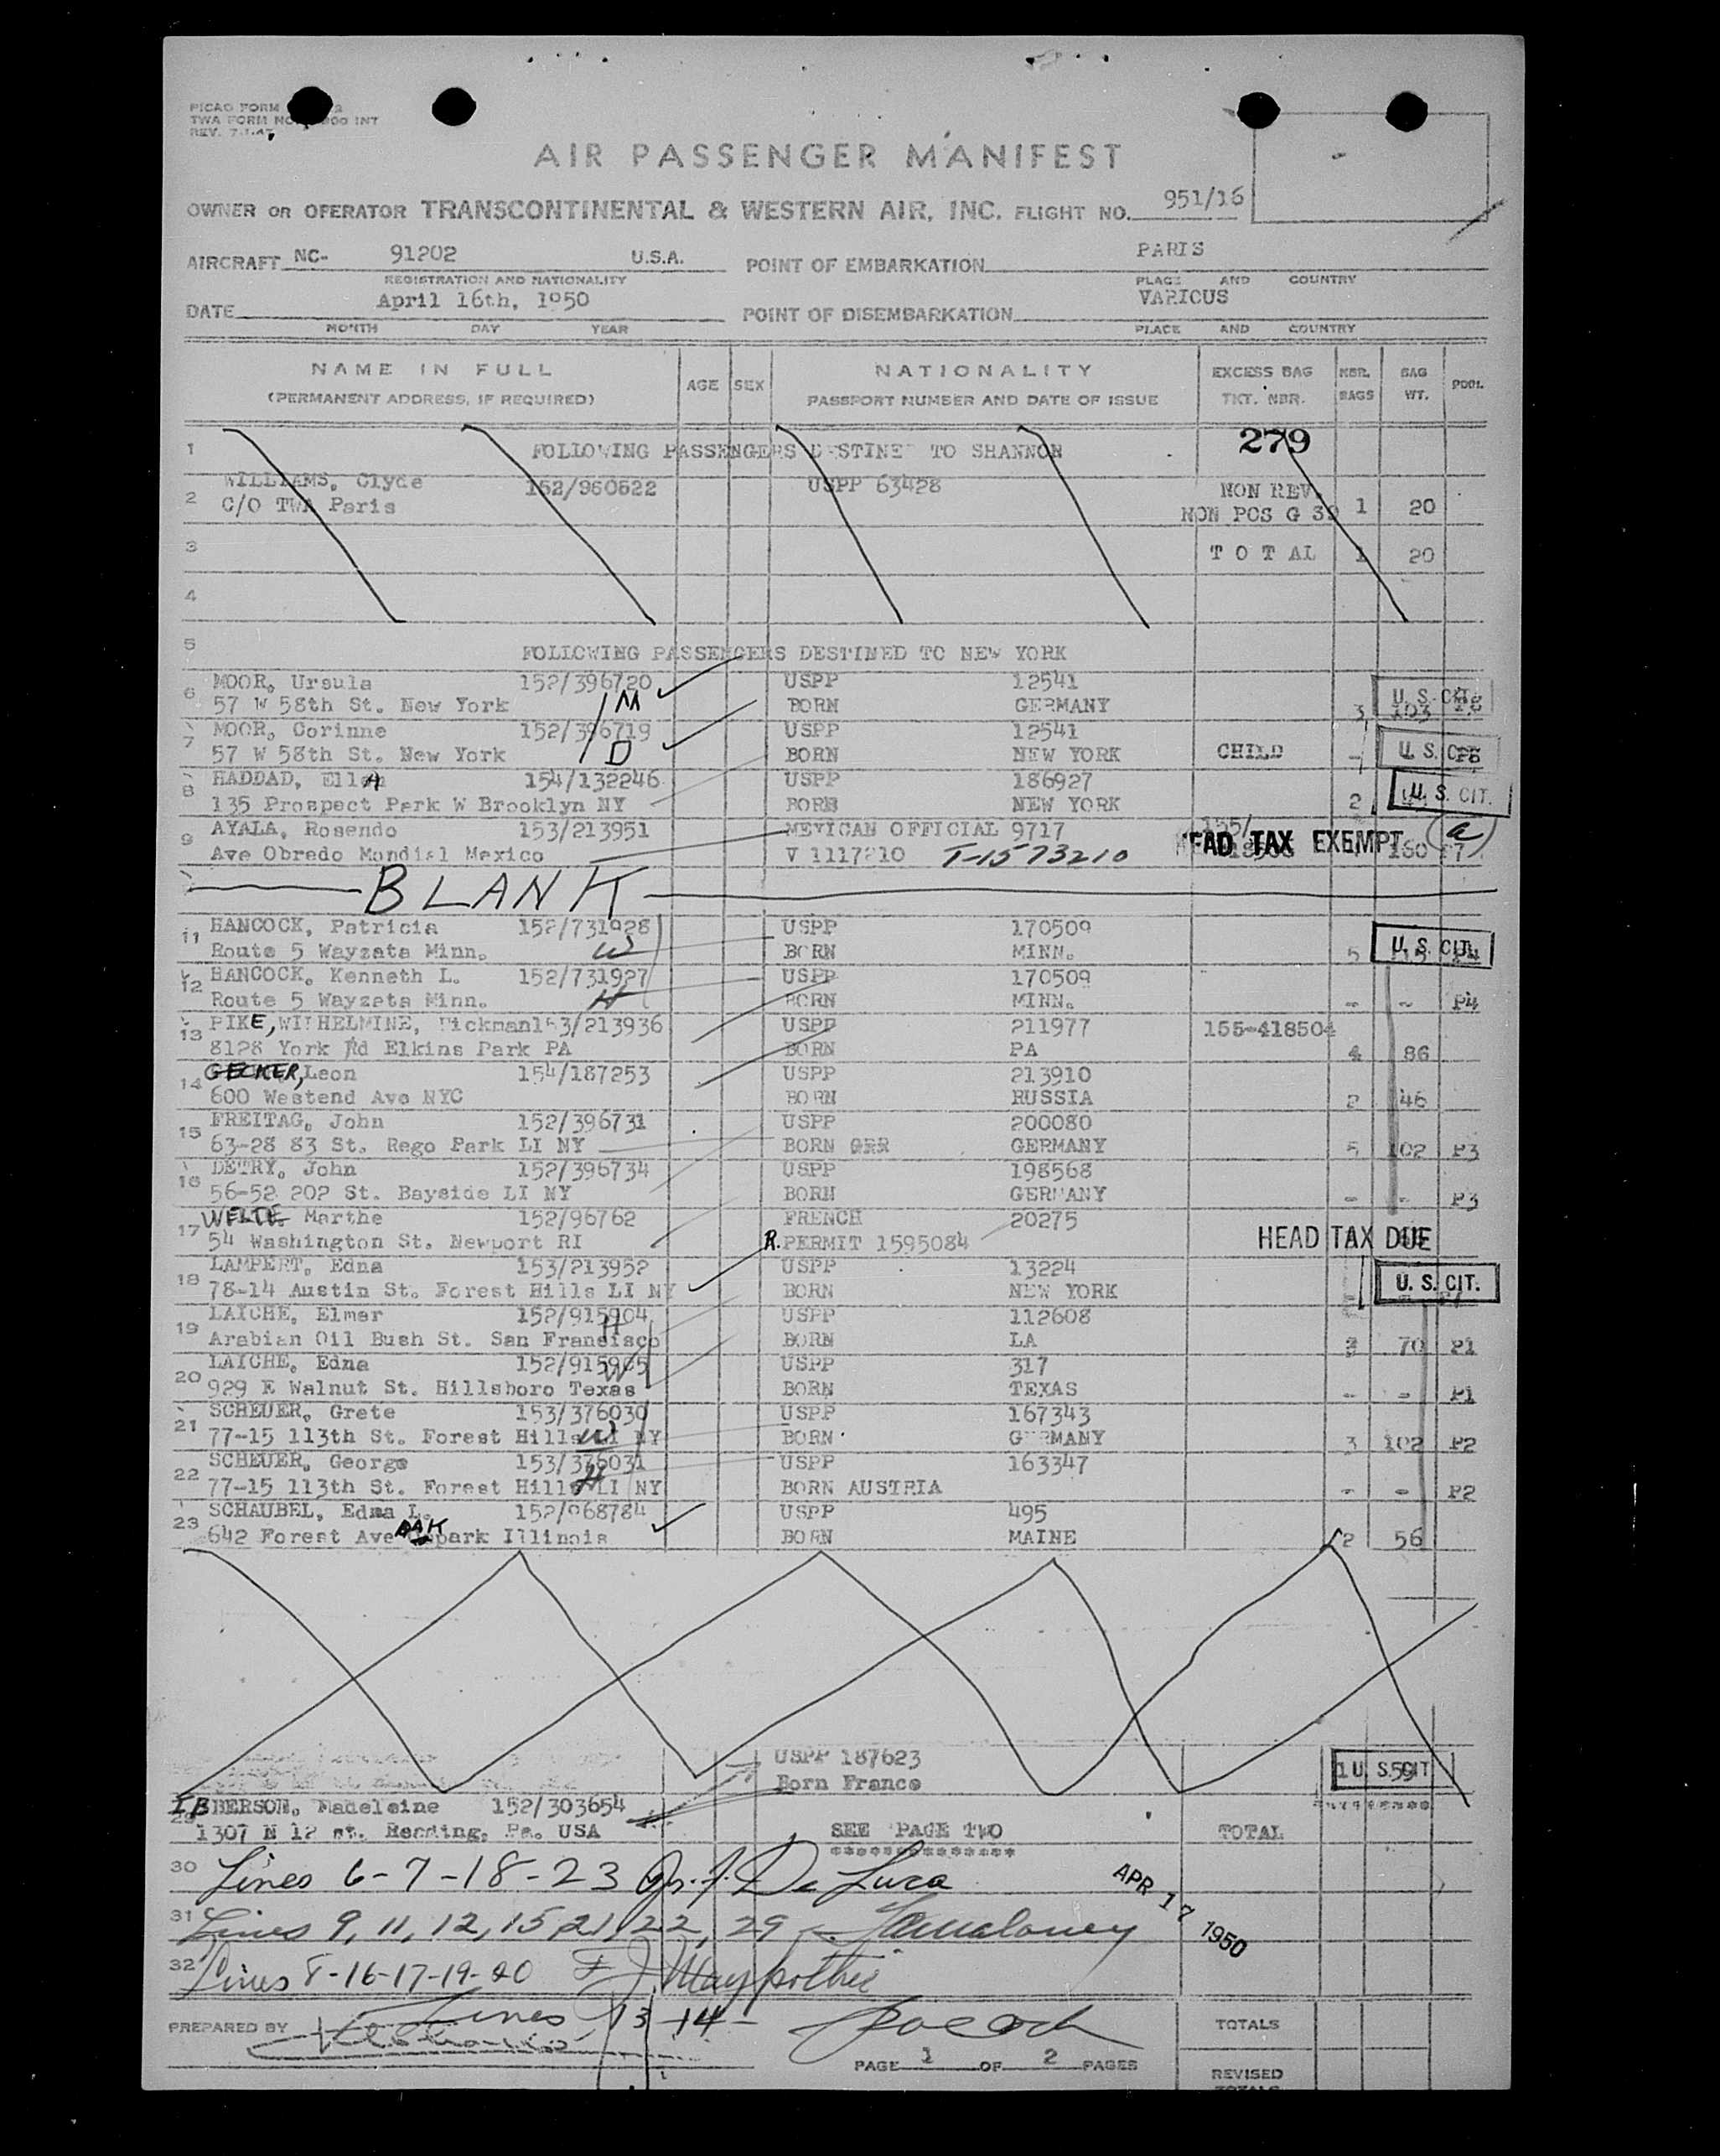 PICAO FORM
TWA FORM NO. 900 INT
REV. 7-1-47
AIR PASSENGER MANIFEST
OWNER OR OPERATOR TRANSCONTINENTAL & WESTERN AIR, INC. FLIGHT NO. 951/16
AIRCRAFT NC- 91202 U.S.A. POINT OF EMBARKATION PARIS
REGISTRATION AND NATIONALITY PLACE AND COUNTRY
DATE April 16th, 1950 POINT OF DISEMBARKATION VARIOUS
MONTH DAY YEAR PLACE AND COUNTRY
NAME IN FULL AGE SEX NATIONALITY EXCESS BAG NBR. BAG POOL
(PERMANENT ADDRESS, IF REQUIRED) PASSPORT NUMBER AND DATE OF ISSUE TKT. NBR. BAGS WT.
1 FOLLOWING PASSENGERS DESTINED TO SHANNON 279
2 WILLIAMS, Clyde 152/960522 USPP 63428 NON REV.
C/O TWA Paris NON POS G 39 1 20
3 T O T A L 1 20
4
5 FOLLOWING PASSENGERS DESTINED TO NEW YORK
6 MOOR, Ursula 152/396720 USPP 12541 U.S. CIT.
57 W 58th St. New York M BORN GERMANY 3 103
7 MOOR, Corinne 152/396719 USPP 12541
57 W 58th St. New York D BORN NEW YORK CHILD - U.S. CIT.
8 HADDAD, Ella 154/132246 USPP 186927
135 Prospect Park W Brooklyn NY BORN NEW YORK 2 U.S. CIT.
9 AYALA, Rosendo 153/213951 MEXICAN OFFICIAL 9717 155/
Ave Obredo Mondial Mexico V 1117210 T-1573210 HEAD TAX EXEMPT (a) 160
BLANK
11 HANCOCK, Patricia 152/731928 USPP 170509
Route 5 Wayzata Minn. W BORN MINN. 5 U.S. CIT.
12 HANCOCK, Kenneth L. 152/731927 USPP 170509
Route 5 Wayzata Minn. H BORN MINN. - - P4
13 PIKE, WILHELMINE, Dickman 153/213936 USPP 211977 155-418504
8128 York Rd Elkins Park PA BORN PA 4 86
14 GECKER, Leon 154/187253 USPP 213910
600 Westend Ave NYC BORN RUSSIA 2 46
15 FREITAG, John 152/396731 USPP 200080
63-28 83 St. Rego Park LI NY BORN GER GERMANY 5 102 P3
16 DETRY, John 152/396734 USPP 198568
56-52 202 St. Bayside LI NY BORN GERMANY - - P3
17 WELTE Marthe 152/96762 FRENCH 20275
54 Washington St. Newport RI R. PERMIT 1595084 HEAD TAX DUE
18 LAMPERT, Edna 153/213952 USPP 13224
78-14 Austin St. Forest Hills LI NY BORN NEW YORK U.S. CIT.
19 LAICHE, Elmer 152/915904 USPP 112608
Arabian Oil Bush St. San Francisco H BORN LA 3 70 P1
20 LAICHE, Edna 152/915905 USPP 317
929 E Walnut St. Hillsboro Texas W BORN TEXAS - - P1
21 SCHEUER, Grete 153/376030 USPP 167343
77-15 113th St. Forest Hills LI NY W BORN GERMANY 3 102 P2
22 SCHEUER, George 153/376031 USPP 163347
77-15 113th St. Forest Hills LI NY H BORN AUSTRIA - - P2
23 SCHAUBEL, Edna L. 152/968784 USPP 495
642 Forest Ave OAK park Illinois BORN MAINE 2 56
USPP 187623 1 U. S. CIT 59
Born France
IBBERSON, Madeleine 152/303654
29 1307 N 12 st. Reading, Pa. USA SEE PAGE TWO TOTAL
30 Lines 6-7-18-23 De Luca APR 17 1950
31 Lines 9, 11, 12, 15, 21, 22, 29
32 Lines 8-16-17-19-20
PREPARED BY Lines 13-14- TOTALS
PAGE 1 OF 2 PAGES REVISED
TOTALS